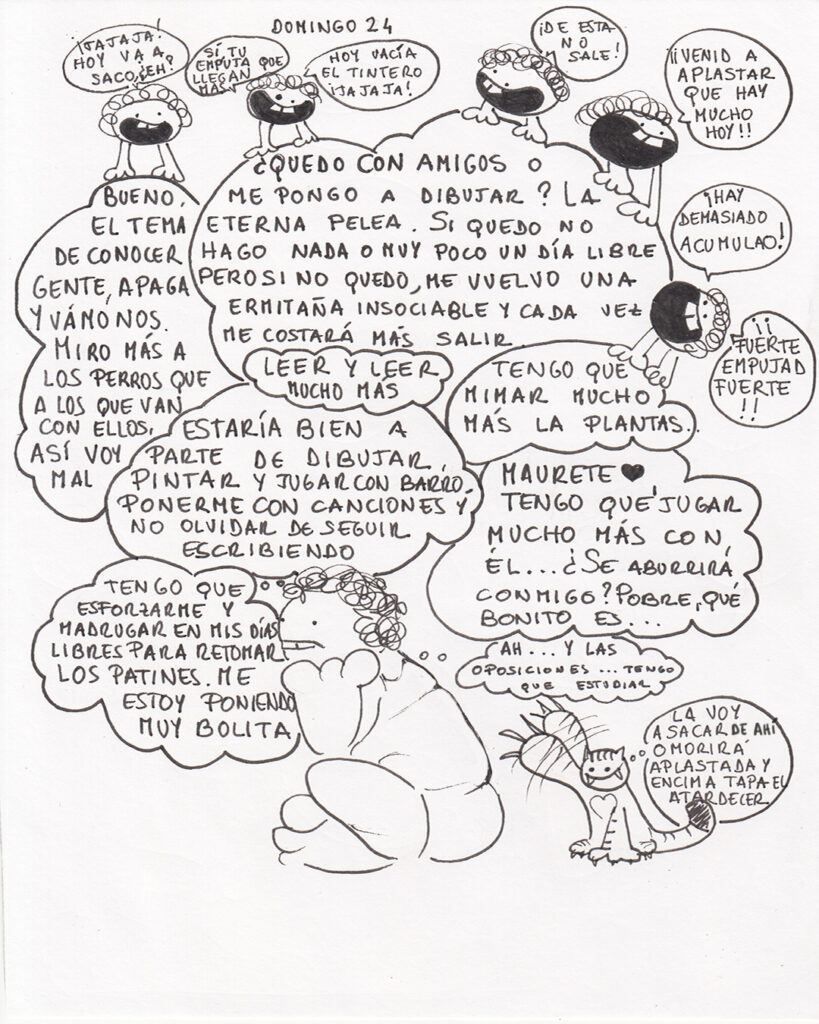 DOMINGO 24
¡JAJAJA!
HOY VA A
SACO, ¿EH?
SÍ, TU
EMPUTA QUE
LLEGAN
MÁS
HOY VACÍA
EL TINTERO
¡JAJAJA!
¡DE ESTA
NO
SALE!
¡¡VENID A
APLASTAR
QUE HAY
MUCHO
HOY!!
¡HAY
DEMASIADO
ACUMULAO!
¡¡
FUERTE
EMPUJAD
FUERTE
!!
BUENO,
EL TEMA
DE CONOCER
GENTE, APAGA
Y VÁMONOS.
MIRO MÁS A
LOS PERROS QUE
A LOS QUE VAN
CON ELLOS,
ASÍ VOY
MAL
¿QUEDO CON AMIGOS O
ME PONGO A DIBUJAR? LA
ETERNA PELEA. SI QUEDO NO
HAGO NADA O MUY POCO UN DÍA LIBRE
PERO SI NO QUEDO, ME VUELVO UNA
ERMITAÑA INSOCIABLE Y CADA VEZ
ME COSTARÁ MÁS SALIR.
LEER Y LEER
MUCHO MAS
TENGO QUE
MIMAR MUCHO
MÁS LA PLANTAS.
ESTARÍA BIEN A
PARTE DE DIBUJAR,
PINTAR Y JUGAR CON BARRO,
PONERME CON CANCIONES Y
NO OLVIDAR DE SEGUIR
ESCRIBIENDO
MAURETE ♥
TENGO QUE JUGAR
MUCHO MÁS CON
ÉL... ¿SE ABURRIRÁ
CONMIGO? POBRE, QUÉ
BONITO ES...
TENGO QUE
ESFORZARME Y
MADRUGAR EN MIS DÍAS
LIBRES PARA RETOMAR
LOS PATINES. ME
ESTOY PONIENDO
MUY BOLITA
AH... Y LAS
OPOSICIONES... TENGO
QUE ESTUDIAR
LA VOY
A SACAR DE AHÍ
O MORIRÁ
APLASTADA Y
ENCIMA TAPA EL
ATARDECER